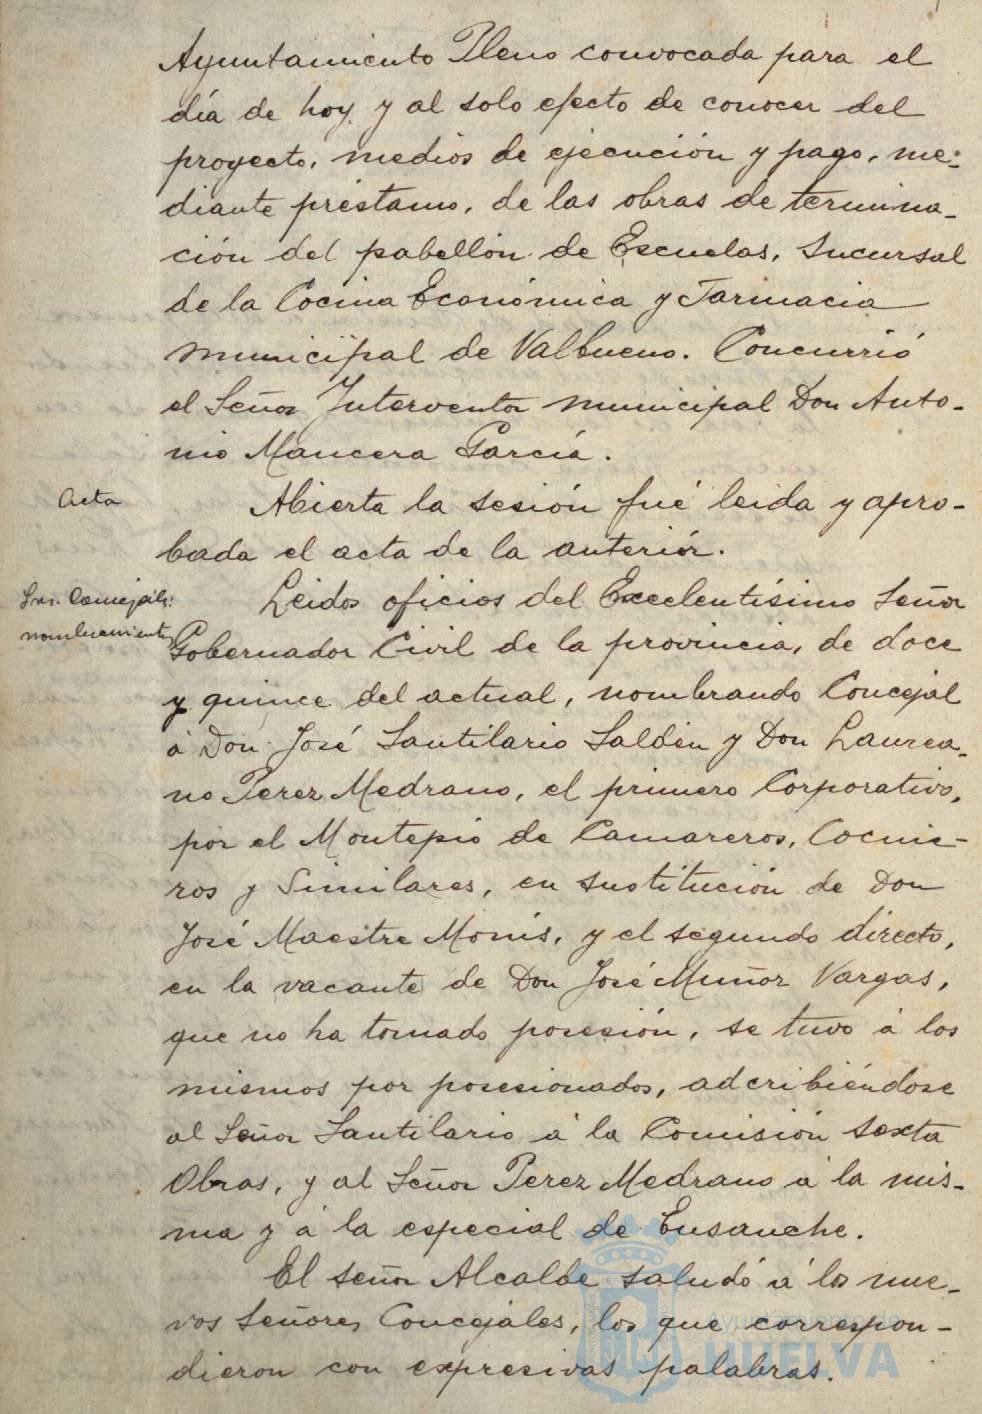 Ayuntamiento Pleno convocada para el
día de hoy y al solo efecto de conocer del
proyecto, medios de ejecución y pago, me-
diante préstamo, de las obras de termina-
ción del pabellón de Escuelas, Sucursal
de la Cocina Económica y Farmacia
municipal de Valbueno. Concurrió
el Señor Interventor municipal Don Anto-
nio Mancera García.
Acta
Abierta la sesión fué leida y apro-
bada el acta de la anteriór.
Sres. Concejales:
nombramientos
Leidos oficios del Excelentísimo Señor
Gobernador Civil de la provincia, de doce
y quince del actual, nombrando Concejal
á Don José Santilario Saldén y Don Laurea-
no Perez Medrano, el primero Corporativo,
por el Montepio de Camareros, Cocine-
ros y Similares, en sustitución de Don
José Maestre Monís, y el segundo directo,
en la vacante de Don José Muñoz Vargas,
que no ha tomado posesión, se tuvo á los
mismos por posesionados, adcribiéndose
al Señor Santilario á la Comisión sexta
Obras, y al Señor Perez Medrano á la mis-
ma y á la especial de Ensanche.
El señor Alcalde saludó á los nue-
vos Señores Concejales, los que correspon-
dieron con expresivas palabras.
Ayuntamiento de
HUELVA